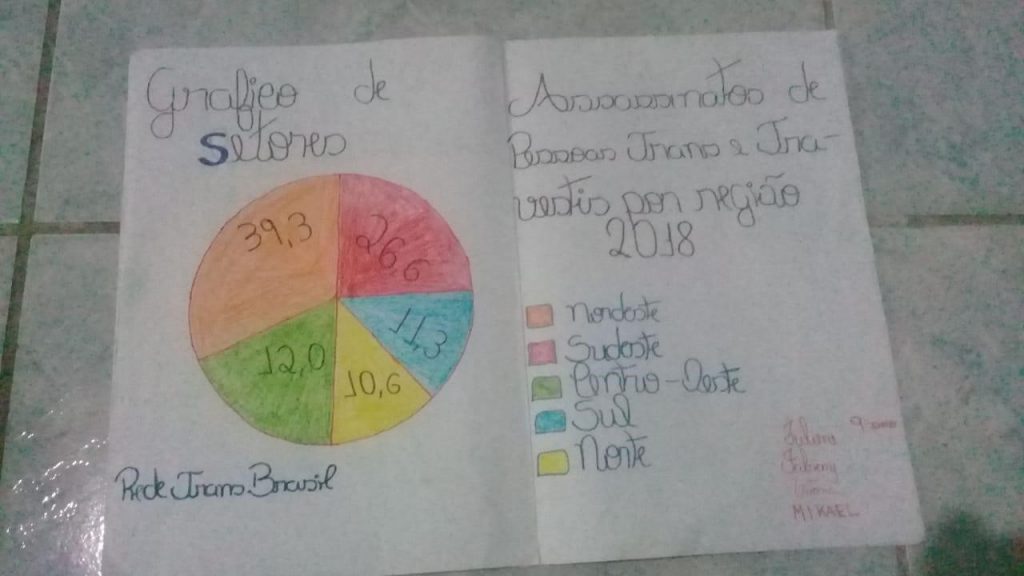 Grafico de
Setores
39,3
26,6
11,3
12,0
10,6
Rede Trans Brasil
Assassinatos de
Pessoas Trans e Tra-
vestis por região
2018
Nordeste
Sudeste
Centro-Oeste
Sul
Norte
MIKAEL